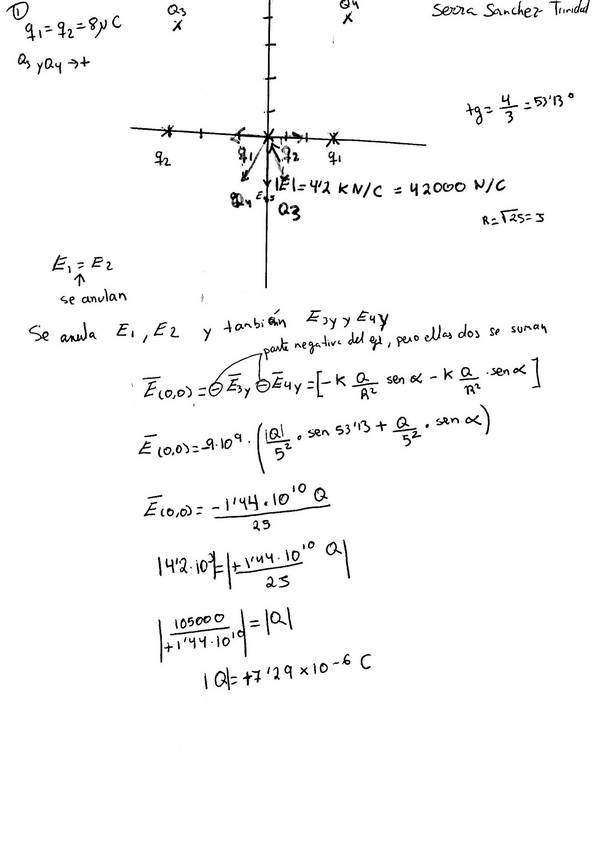 ① Q3 Q4 Serra Sanchez Trinidad
q1 = q2 = 8μC
Q3 y Q4 → +
tg = 4/3 = 53'13°
q2 q1 q2 q1
Q4 E4,3 |E| = 4'2 KN/C = 42000 N/C
Q3
R = √25 = 5
E1 = E2
↑
se anulan
Se anula E1, E2 y también E3y y E4y
parte negativa del eje, pero ellas dos se suman
E(0,0) = ⊖ E3y ⊖ E4y = [-K Q/R² sen α - K Q/R² · sen α]
E(0,0) = -9·10⁹ · (|Q|/5² · sen 53'13 + Q/5² · sen α)
E(0,0) = -1'44·10¹⁰ Q / 25
|4'2·10³| = |+1'44·10¹⁰ Q / 25|
|105000 / +1'44·10¹⁰| = |Q|
|Q| = +7'29 × 10⁻⁶ C